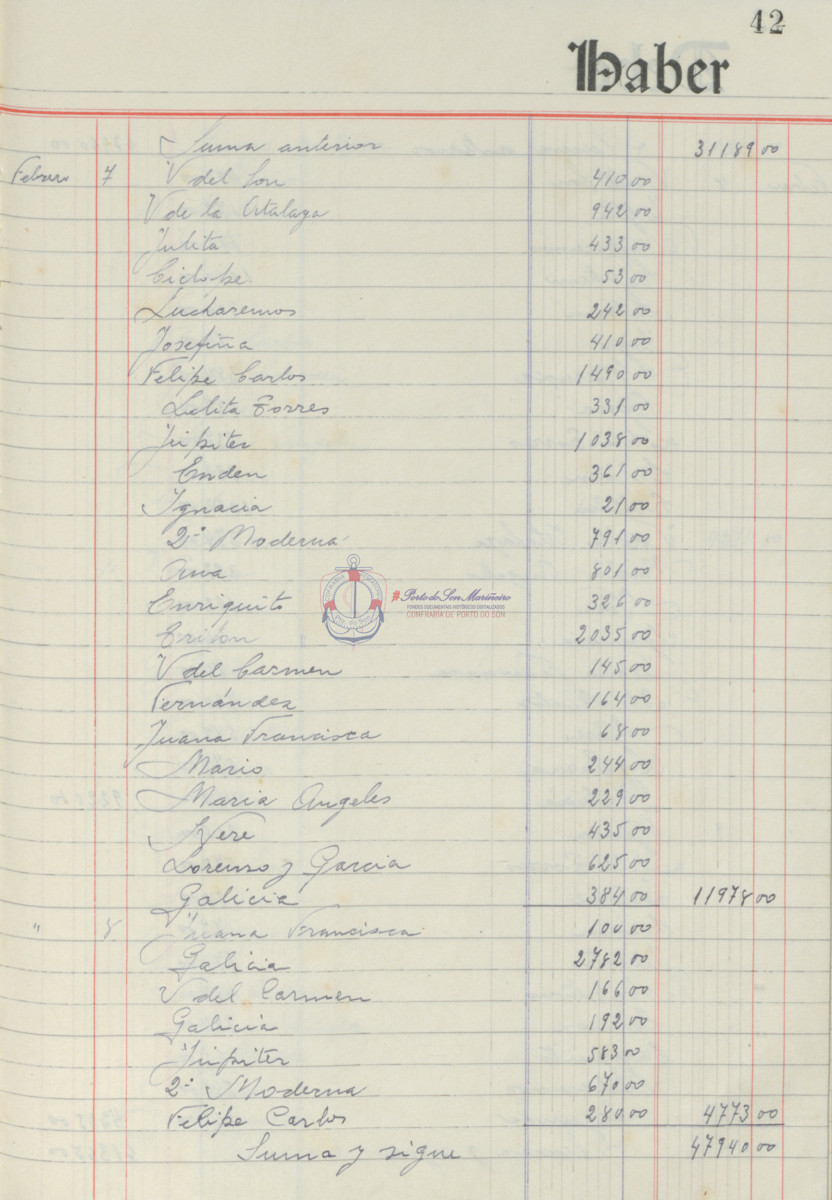 42
Haber
Suma anterior 31189 00
Febrero 7 V del Son 410 00
V de la Atalaya 942 00
Julita 433 00
Ciclope 53 00
Lucharemos 242 00
Josefina 410 00
Felipe Carlos 1490 00
Lolita Torres 331 00
Jupiter 1038 00
Enden 361 00
Ignacia 21 00
2ª Moderna 791 00
Ana 801 00
Enriquito 326 00
Triton 2035 00
V del Carmen 145 00
Fernández 164 00
Juana Francisca 68 00
Mario 244 00
Maria Angeles 229 00
Nere 435 00
Lorenzo y Garcia 625 00
Galicia 384 00 11978 00
" 8 Juana Francisca 100 00
Galicia 2782 00
V del Carmen 166 00
Galicia 192 00
Jupiter 583 00
2ª Moderna 670 00
Felipe Carlos 280 00 4773 00
Suma y sigue 47940 00
#Porto do Son Mariñeiro
FONDOS DOCUMENTAIS HISTÓRICOS DIXITALIZADOS
CONFRARÍA DE PORTO DO SON